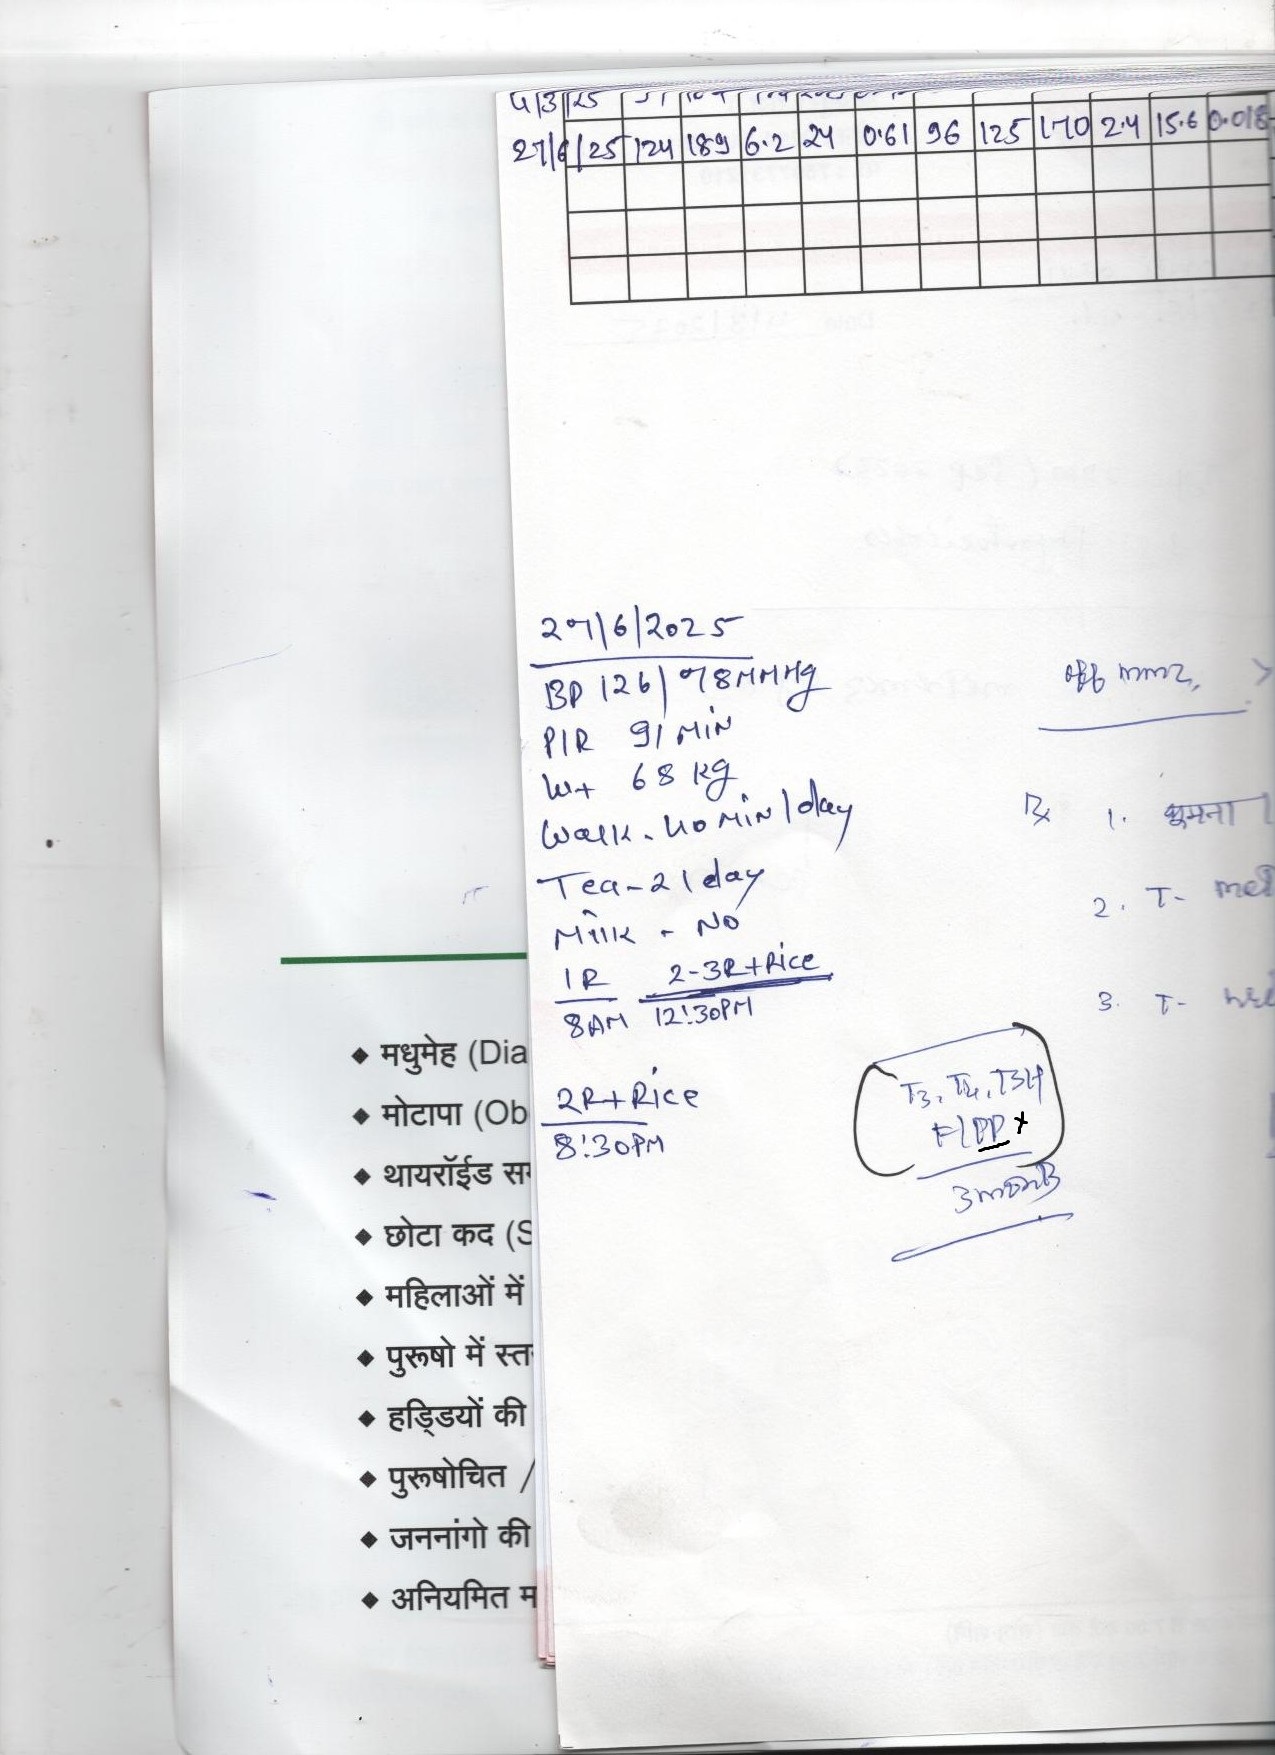 4/3/25
27/6/25 124 189 6.2 24 0.61 96 125 170 2.4 15.6 0.018
27/6/2025
BP 126/78MMHg
P/R 91 MIN
Wt 68 Kg
Walk - 40 Min/day
Tea - 2/day
Milk - NO
1R 2-3R+Rice
8AM 12:30PM
2R+Rice
8:30PM
off mmz,
Rx 1. घूमना
2. T-
3. T-
T3, T4, TSH
F/PP x
3 month
◆ मधुमेह (Dia
◆ मोटापा (Ob
◆ थायरॉईड सम
◆ छोटा कद (S
◆ महिलाओं में
◆ पुरूषो में स्त
◆ हड्डियों की
◆ पुरूषोचित /
◆ जननांगो की
◆ अनियमित म